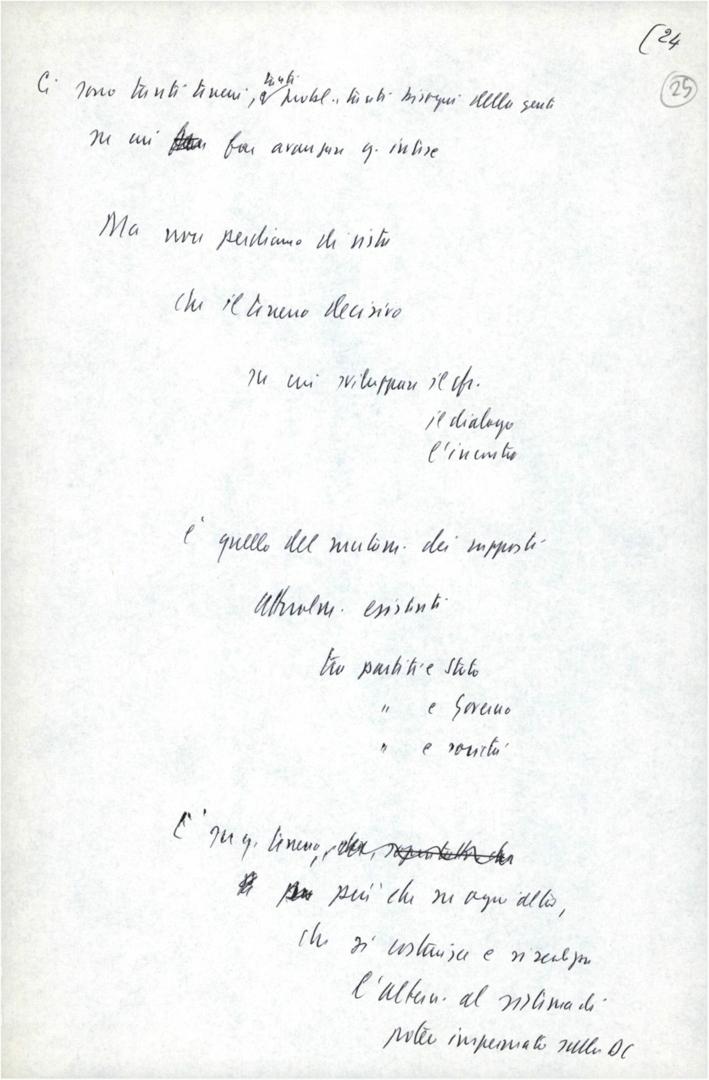 24
25
Ci sono tanti terreni, tanti probl., tanti bisogni della gente
su cui far avanzare q. intese
Ma non perdiamo di vista
che il terreno decisivo
su cui sviluppare il cfr.
il dialogo
l'incontro
è quello del mutam. dei rapporti
attualm. esistenti
tra partiti e Stato
" e Governo
" e società
È su q. terreno,
più che su ogni altro,
che si costruisce e si
l'altern. al sistema di
potere imperniato sulla DC